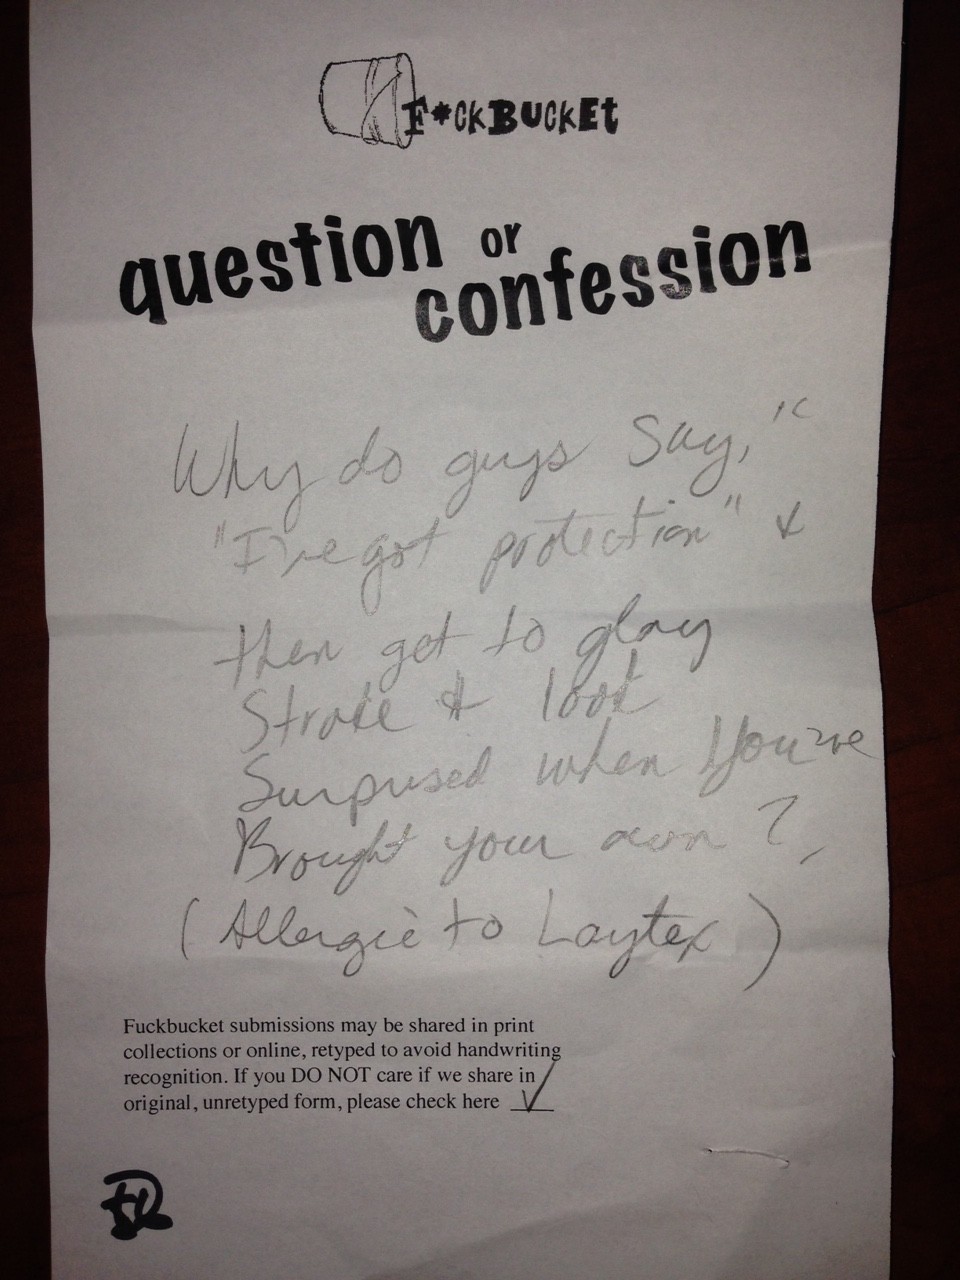 F*CKBUCKEt
question or
confession
Why do guys Say, "
"I've got protection" &
then get to glory
Stroke & look
Surprised when You've
Brought your own ?
(Allergic to Laytex)
Fuckbucket submissions may be shared in print
collections or online, retyped to avoid handwriting
recognition. If you DO NOT care if we share in
original, unretyped form, please check here ✓